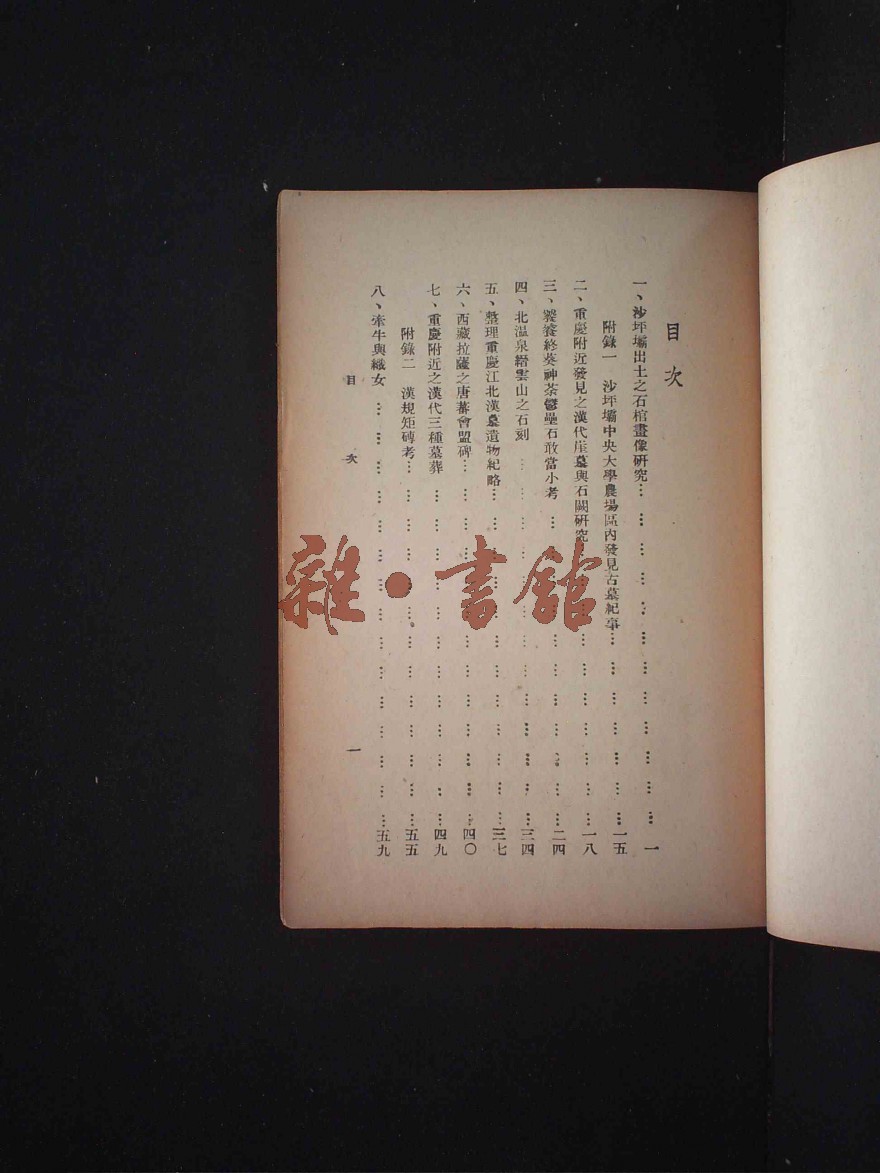 目次
一、沙坪壩出土之石棺畫像研究………………………………一
附錄一 沙坪壩中央大學農場區內發見古墓紀事…………………一五
二、重慶附近發見之漢代崖墓與石闕研究…………………………一八
三、饕餮終葵神荼鬱壘石敢當小考…………………………二四
四、北溫泉縉雲山之石刻…………………………三四
五、整理重慶江北漢墓遺物紀略…………………………三七
六、西藏拉薩之唐蕃會盟碑…………………………四〇
七、重慶附近之漢代三種墓葬…………………………四九
附錄二 漢規矩磚考…………………………五五
八、牽牛與織女…………………………五九
目次
一
雜·書館